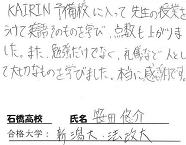 KAIRIN予備校に入って先生の授業を
うけて英語そのものを学び、点数も上がりまし
た。また、勉強だけでなく、礼儀など人とし
て大切なものを学びました。本当に感謝です。
石橋高校 氏名 笹田 悠介
合格大学: 新潟大・法政大